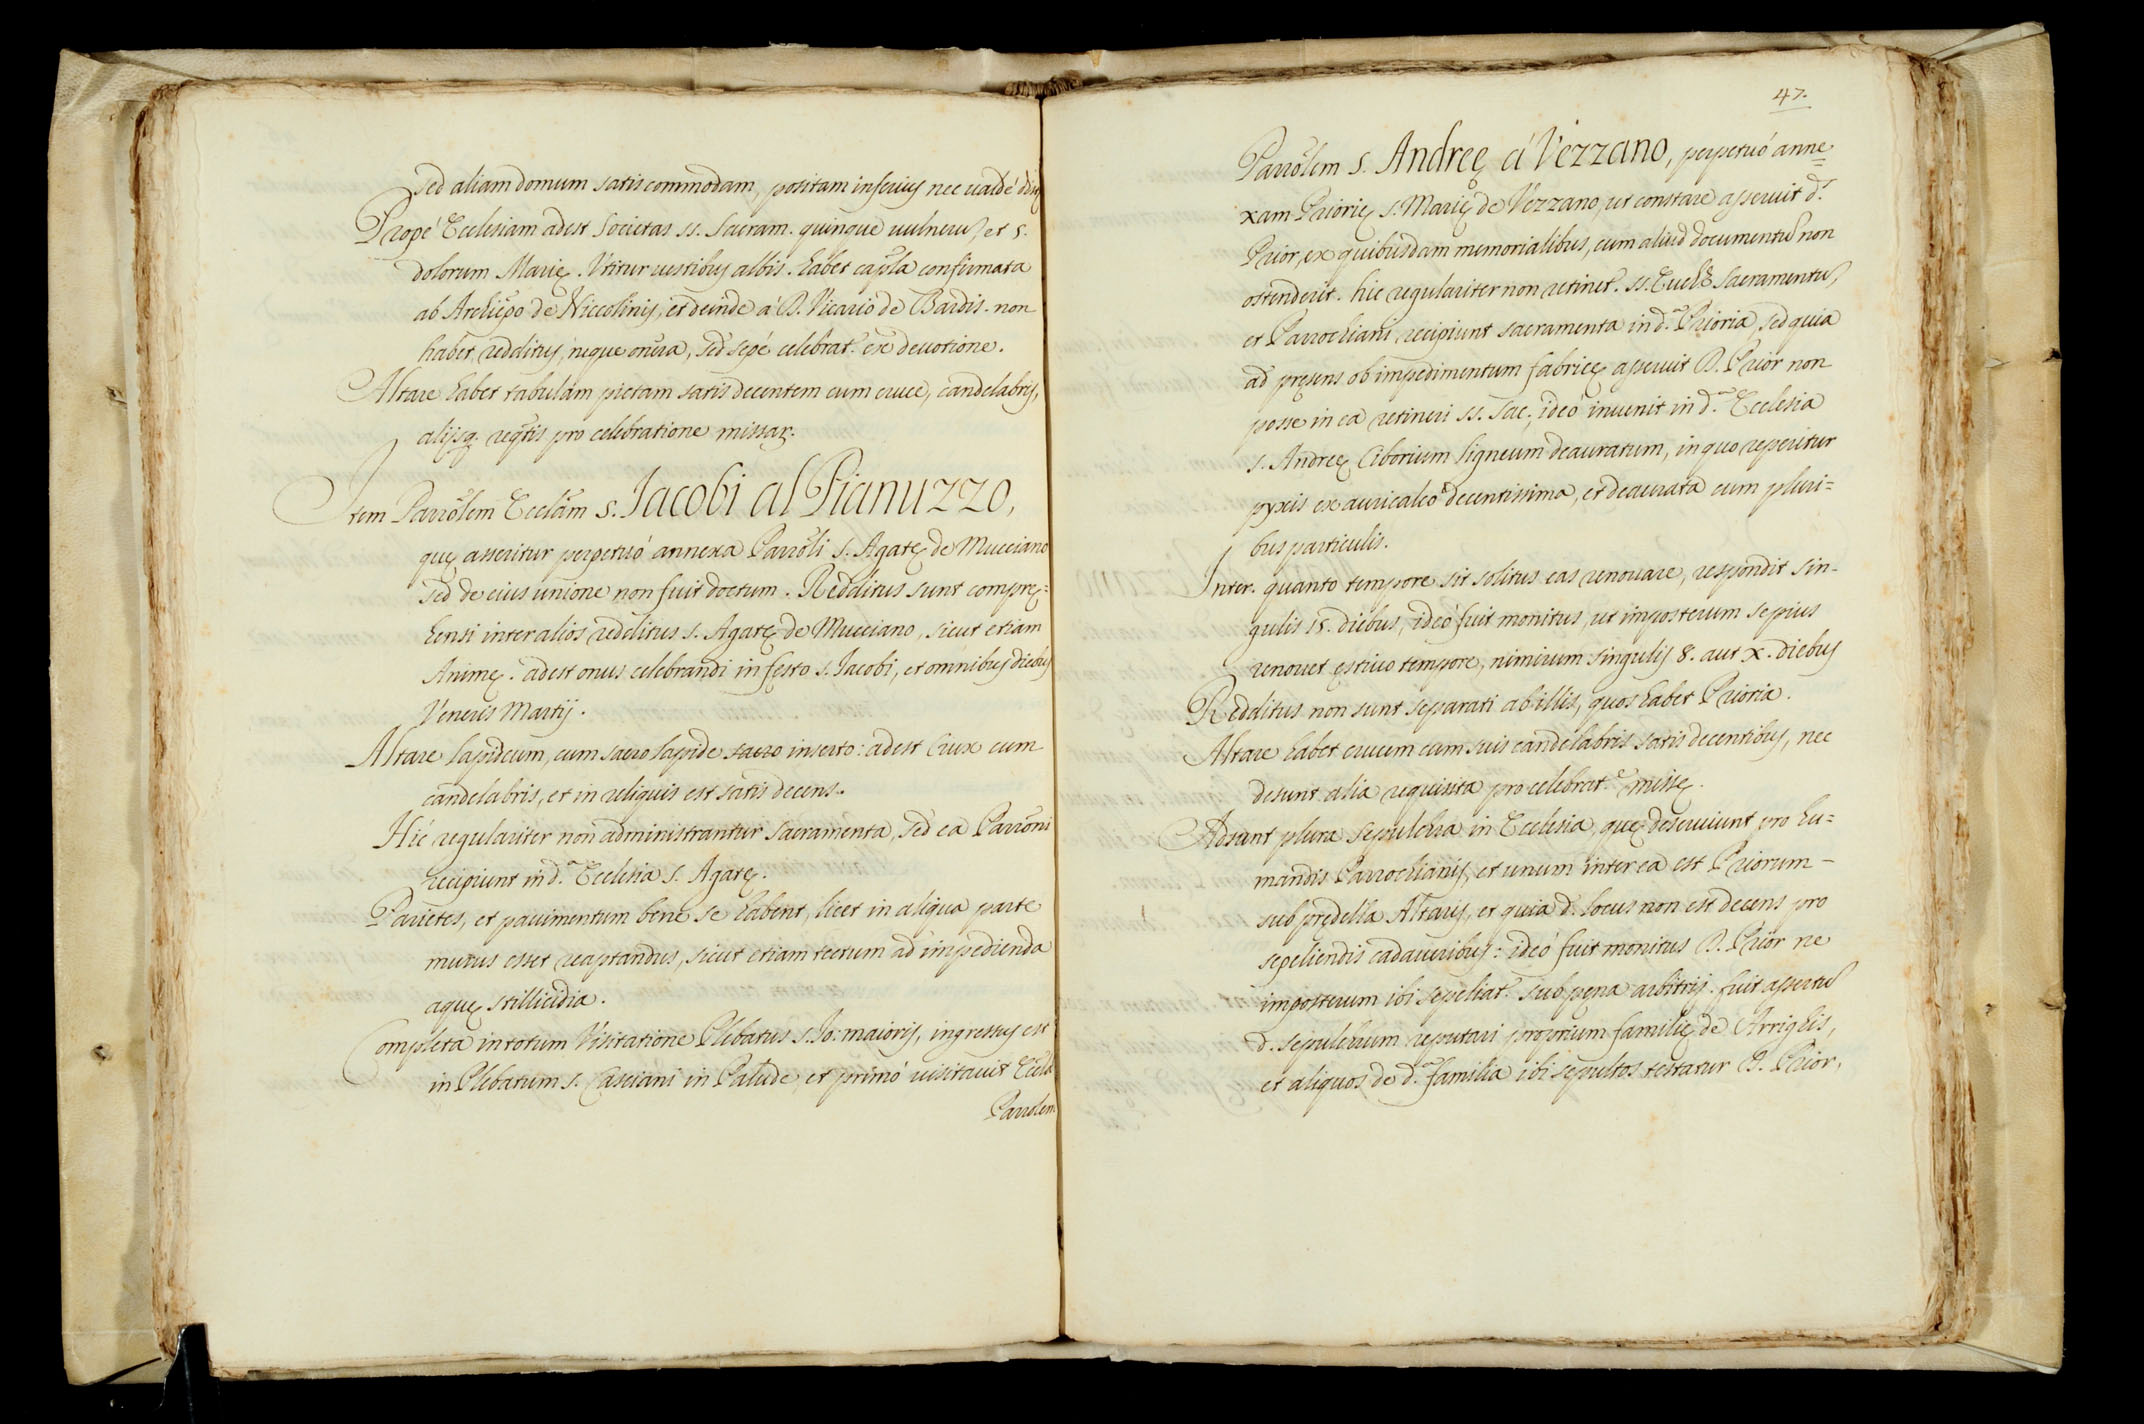 sed aliam domum satis commodam, positam inferius nec valdé
Propé Ecclesiam adest Societas ss. Sacram. quinque vulneru, et s.
dolorum Marię. Utitur vestibus albis. habet capla confirmata
ab Archiepo de Niccolinis, et deinde á D. Vicario de Bardis. non
habet redditus, neque onera, sed sepé celebrat. ex devotione.
Altare habet tabulam pictam satis decentem cum cruce, candelabris,
alijsq. reqtis pro celebratione missar.
Item Parrolem Ecclam S. Iacobi al Pianuzzo,
quę asseritur perpetuó annexa Parroli S. Agatę de Mucciano
sed de eius unione non fuit doctum. Redditus sunt comprę=
hensi inter alios redditus S. Agatę de Mucciano, sicut etiam
Animę. adest onus celebrandi in festo S. Iacobi, et omnibus diebus
Veneris Martij.
Altare lapideum, cum sacro lapide sacro inserto: adest Crux cum
candelabris, et in reliquis est satis decens.
Hic regulariter non administrantur sacramenta, sed ea Parroni
recipiunt in d.ª Ecclesia S. Agatę.
Parietes, et pavimentum bene se habent, licet in aliqua parte
murus esset reaptandus, sicut etiam tectum ad impedienda
aquę stillicidia.
Completa in totum Visitatione Plebatus S. Io: maioris, ingressus est
in Plebatum S. Casciani in Palude, et primó visitavit Eccla
Parrolem
47.
Parrolem S. Andreę á Vezzano, perpetuó anne=
xam Priorię S. Marię de Vezzano, ut constare asseruit d.s
Prior, ex quibusdam memorialibus, cum aliud documentu non
ostenderit. hic regulariter non retinet. ss. Euch. Sacramentu,
et Parrochiani recipiunt sacramenta in d.ª Prioria, sed quia
ad pręsens ob impedimentum fabricę asseruit D. Prior non
posse in ea retineri ss. Sac., ideó invenit in d.ª Ecclesia
S. Andreę Ciborium ligneum deauratum, in quo reperitur
pyxis ex auricalco decentissima, et deaurata cum pluri=
bus particulis.
Inter. quanto tempore sit solitus eas renovare, respondit sin-
gulis 15. diebus, ideó fuit monitus, ut imposterum sepius
renovet ęstivo tempore, nimirum singulis 8. aut X. diebus
Redditus non sunt separati ab illis, quos habet Prioria.
Altare habet crucem cum suis candelabris satis decentibus, nec
desunt alia requisita pro celebrat.e missę.
Adsunt plura sepulchra in Ecclesia, quę deserviunt pro hu=
mandis Parrochianis, et unum inter ea est Priorum -
sub prędella Altaris, et quia d. locus non est decens pro
sepeliendis cadaveribus: ideó fuit monitus D. Prior ne
imposterum ibi sepeliat. sub pęna arbitrij. fuit assertu
d. sepulchrum reputari proprium familię de Arrighis,
et aliquos de d.ª familia ibi sepultos testatur D. Prior,